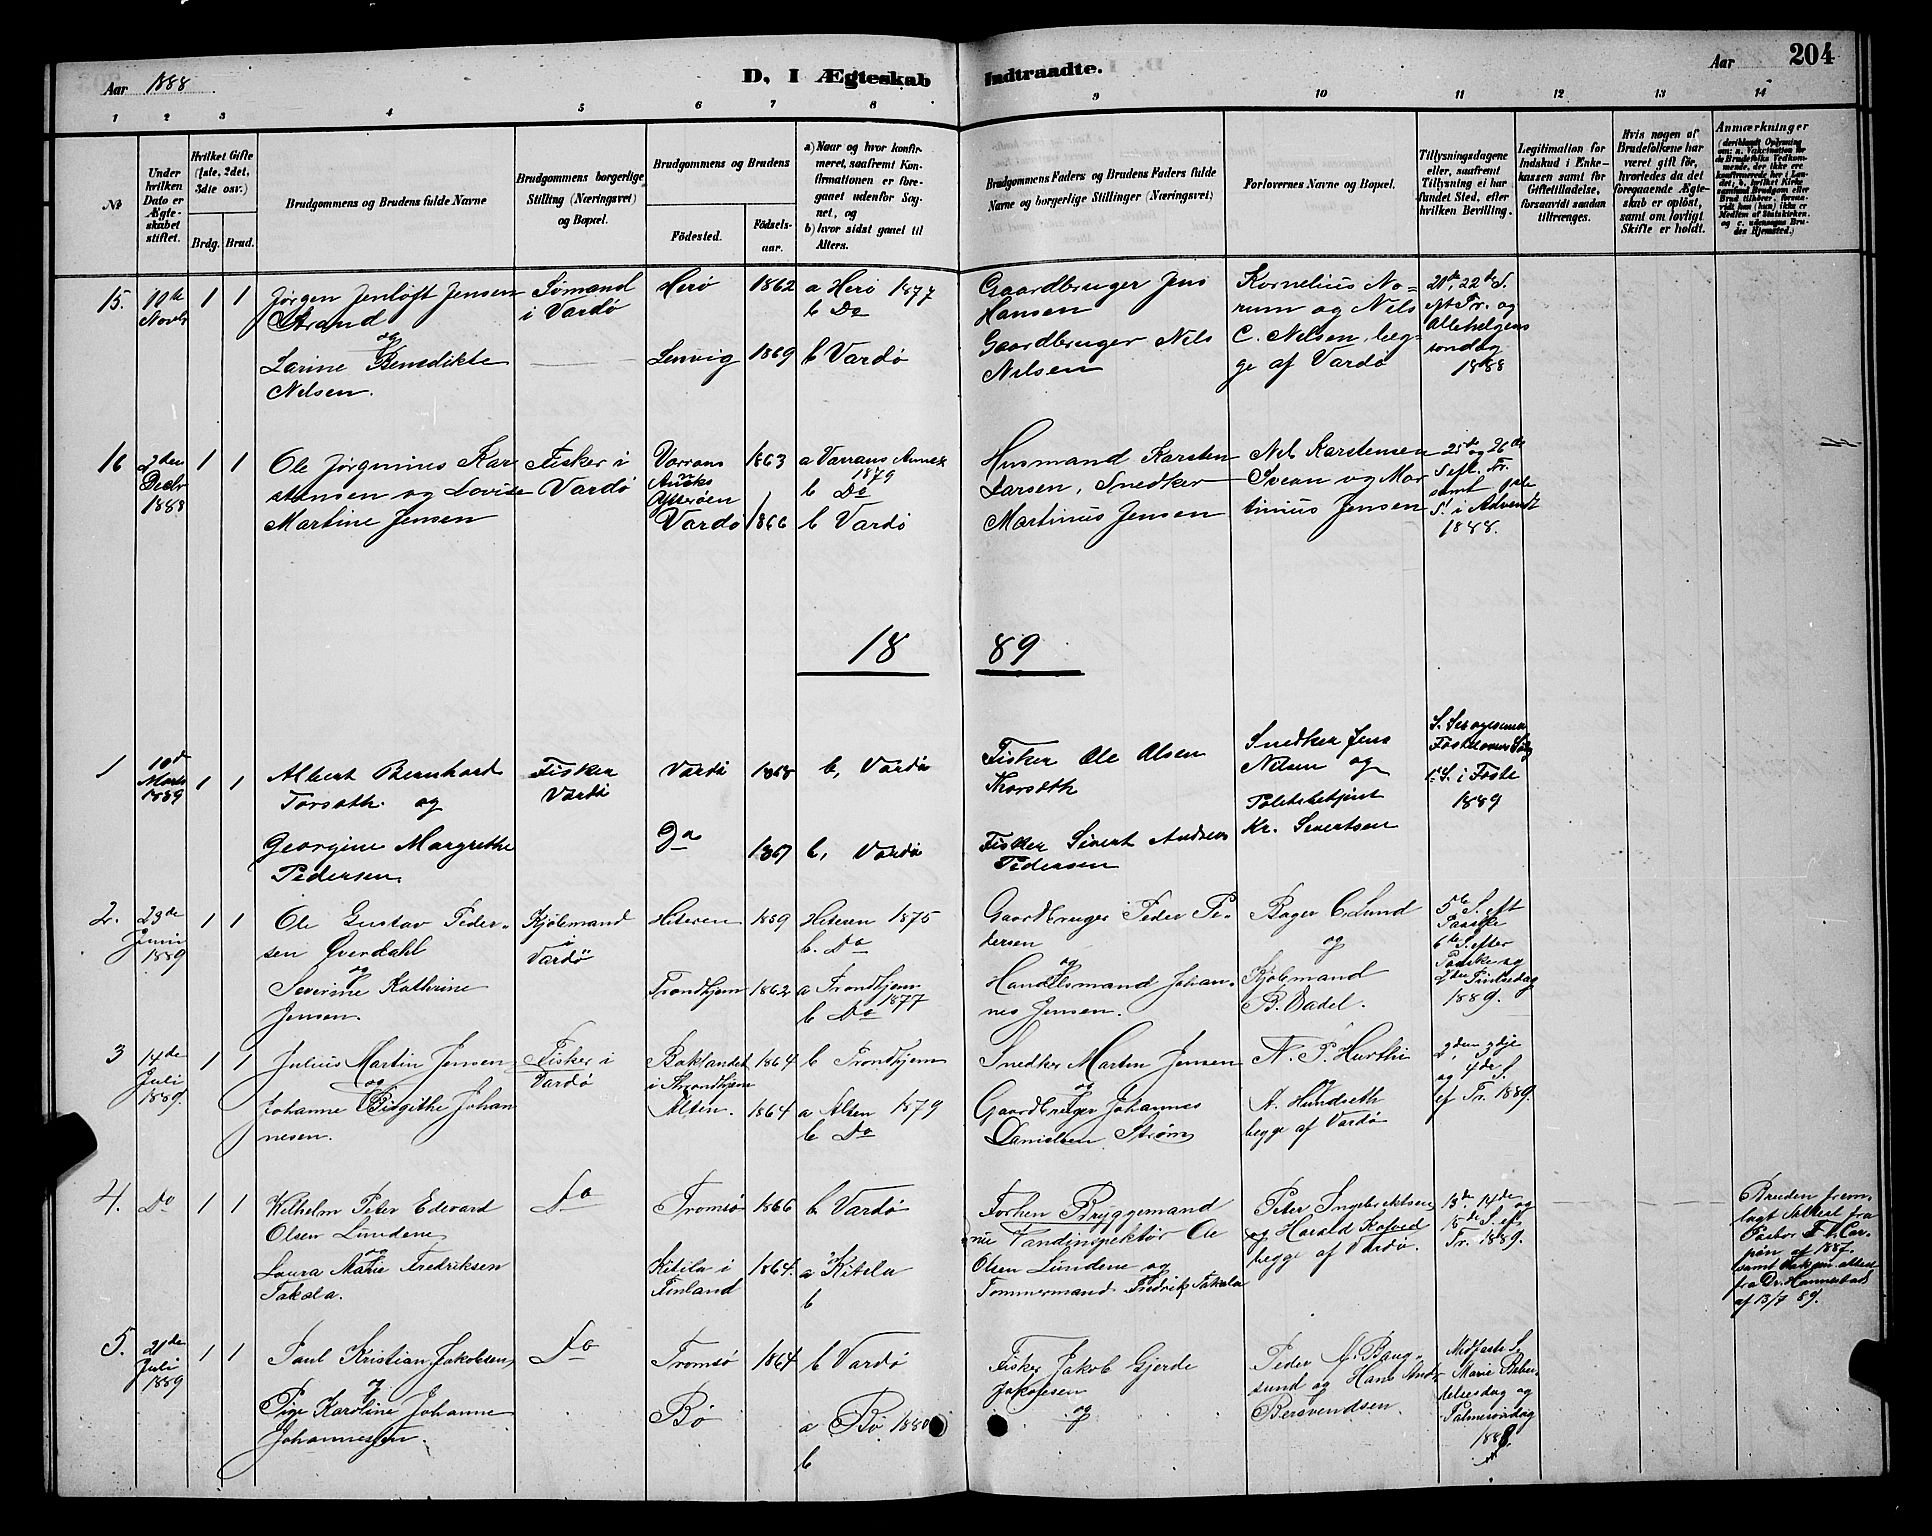 Aar 1888
D, I Ægteskab Indtraadte.
Aar 204
1 2 3 4 5 6 7 8 9 10 11 12 13 14
№
Under hvilken Dato er Ægteskabet stiftet.
Hvilket Gifte (1ste, 2det, 3die osv.)
Brdg. Brud.
Brudgommens og Brudens fulde Navne
Brudgommens borgerlige Stilling (Næringsvei) og Bopæl.
Brudgommens og Brudens
Födested.
Födselsaar.
a) Naar og hvor konfirmeret, saafremt Konfirmationen er foregaaet udenfor Sognet, og
b) hvor sidst gaaet til Alters.
Brudgommens Faders og Brudens Faders fulde Navne og borgerlige Stillinger (Næringsvei)
Forlovernes Navne og Bopæl.
Tillysningsdagene eller, saafremt Tillysning ei har fundet Sted, efter hvilken Bevilling.
Legitimation for Indskud i Enkekassen samt for Giftetilladelse, forsaavidt saadan tiltrænges.
Hvis nogen af Brudefolkene har været gift för, hvorledes da det foregaaende Ægteskab er oplöst, samt om lovligt Skifte er holdt.
Anmærkninger
15. 10de Novbr 1 1
Jörgen Jenloft Jensen
Strand
og
Larine Bendikte
Nelsen.
Sömand
i Vardö
Herö 1862
a Herö 1877
b Do
Lenvig 1869
b Vardö
Gaardbruger Jens
Hansen
Gaardbruger Nils
Nilsen
Kornelius No-
rum og Nils
C. Nelsen, beg-
ge af Vardö
21de, 22de S.
eft Tr. og
Allehelgens
söndag
1888
16 2den Decbr 1888 1 1
Ole Jörginius Kar
stensen og Lovise
Martine Jensen
Fisker i
Vardö
Ytteröen
1863
1879
b Do
Vardö 1866
b Vardö
Husmand Karsten
Larsen, Snedker
Martinus Jensen
Nel Karstensen
Svean og Mar
tinius Jensen
25de og 26de
S eft. Tr.
samt 1ste
S. i Advent
1888.
18 89
1 10de Marts 1889 1 1
Albert Bernhard
Torseth og
Georgine Margrethe
Pedersen
Fisker
Vardö
Vardö 1868
b, Vardö
Do 1867
b, Vardö
Fisker Ole Olsen
Thorseth
Fisker Sivert Andreas
Pedersen
Snedker Jens
Nilsen og
Politibetjent
Kr. Sivertsen
1 S. i Faste
1889
2. 23de Juni 1889 1 1
Ole Gustav Peder-
sen Overdahl
og
Severine Kathrine
Jensen.
Kjöbmand
Vardö
Hiteren 1859
Hiteren 1875
b. Do
Trondhjem 1862
a Trondhjem 1877
b Do
Gaardbruger Peder Pe-
dersen
og
Handelsmand Johan-
nes Jensen.
Bager C. Lund
og
Kjöbmand
B. Dadel.
5te S. eft
Paaske
6te S. efter
Paaske og
2den Pintsedag
1889.
3 14de Juli 1889. 1 1
Julius Martin Jensen
og
Johanne Birgithe Johan
nesen.
Fisker i
Vardö
Baklandet
i Throndhjem
1864
b Trondhjem
Alsten. 1864
a Alsten 1879
b Do
Snedker Martin Jensen
og
Gaardbruger Johannes
Danielsen Ström
N. P. Hurthi
A. Hundseth
begge af Vardö
2den 3dje
og 4de S.
ef Tr. 1889.
4. Do 1 1
Wilhelm Peter Edevard
Olsen Lundene
og
Laura Marie Fredriksen
Takala.
Do
Tromsö 1866
b Vardö
Kitila i
Finland
1864.
a Kitela
b
Forhen Bryggemand
nu Vandinspektör Ole
Olsen Lundene og
Tommermand Fredrik Takala
Peter Ingebriktsen
og Harald Kofoed
begge af Vardö.
13de 14de og
15de S. eft
Tr. 1889.
Bruden frem-
lagt Attest fra
Pastor
af 1887.
samt Vakcin. attest
fra Dr. Hannestad
af 13/7 89.
5. 21de Juli 1889 1 1
Paul Kristian Jakobsen
og
Pige Karoline Johanne
Johannessen.
Do
Tromsö 1864.
b Vardö
Bö
a Bö 1880
b
Fisker Jakob Gjerde
Jakobsen
og
Peder A. Baug-
sund og Hans Andr
Bersvendsen.
Midfaste S.
Marie Bebu-
delsesdag og
Palmesöndag
1889.